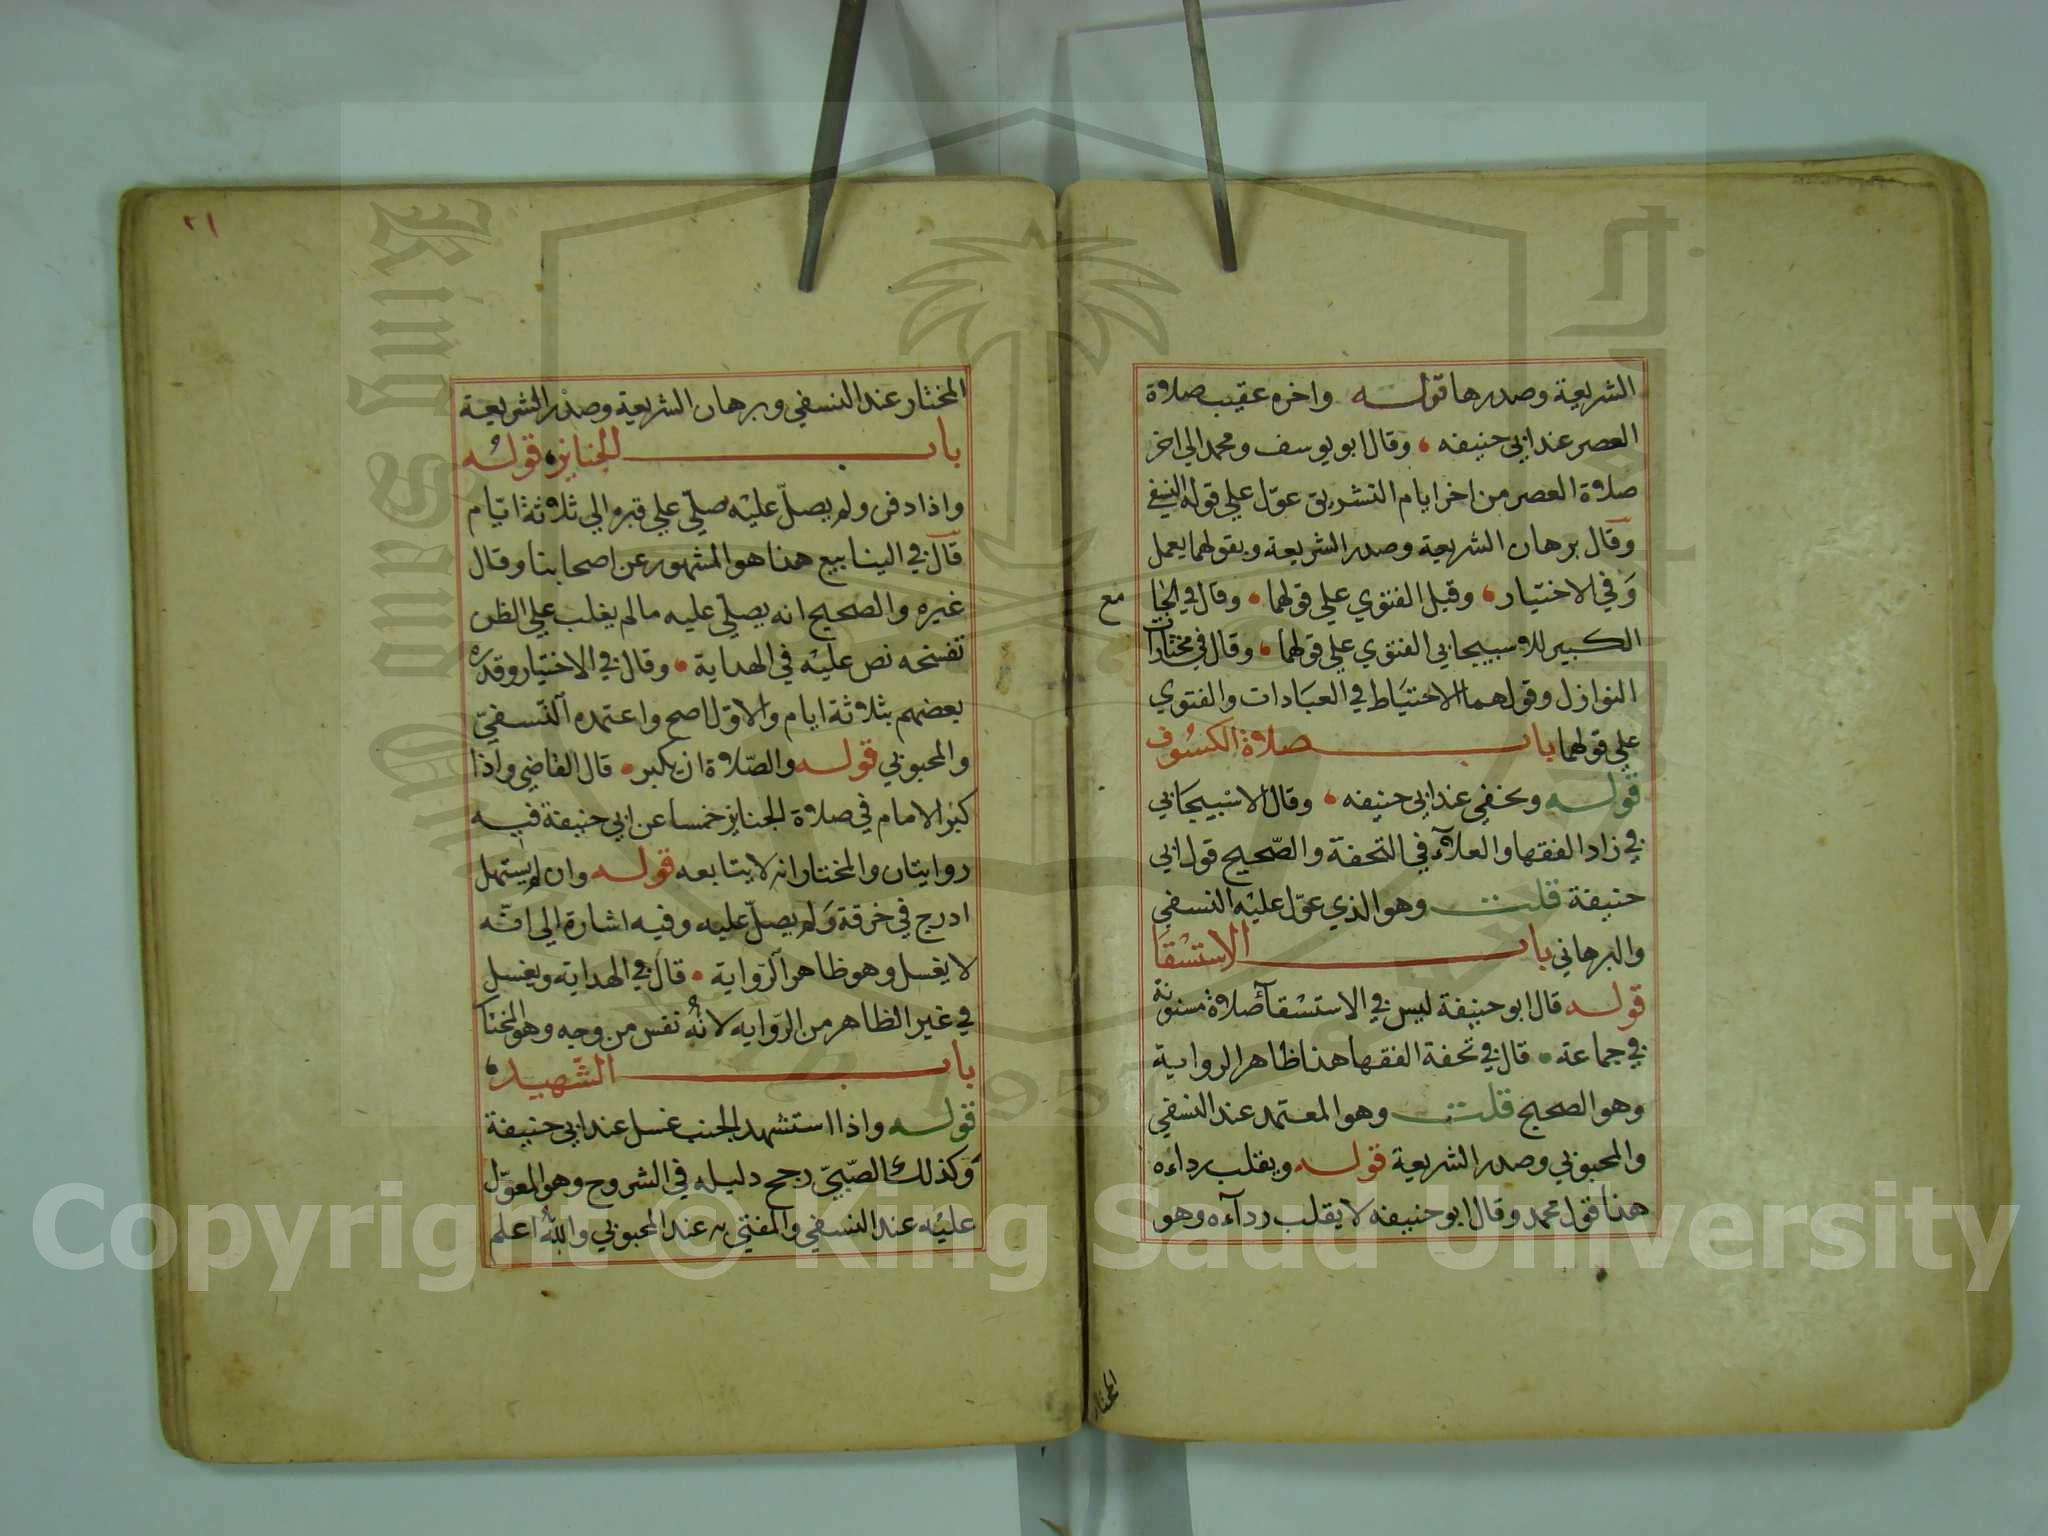 الشريعة وصدرها قوله واخره عقيب صلاة
العصر عند ابي حنيفه وقال ابو يوسف ومحمد الي اخر
صلاة العصر من اخر ايام التشريق عول علي قوله النسفي
وقال برهان الشريعة وصدر الشريعة وبقولهما يعمل
وفي الاختيار وقيل الفتوي علي قولهما وقال في الجا
مع
الكبير للاسبيجابي الفتوي علي قولهما وقال في مختارات
النوازل وقولهما الاحتياط في العبادات والفتوي
علي قولهما باب صلاة الكسوف
قوله ويخفي عند ابي حنيفه وقال الاسبيجابي
في زاد الفقها والعلاء في التحفة والصحيح قول ابي
حنيفة قلت وهو الذي عول عليه النسفي
والبرهاني باب الاستسقا
قوله قال ابو حنيفة ليس في الاستسقاء صلاة مسنونة
في جماعة قال في تحفة الفقها هذا ظاهر الرواية
وهو الصحيح قلت وهو المعتمد عند النسفي
والمحبوبي وصدر الشريعة قوله ويقلب رداءه
هذا قول محمد وقال ابو حنيفه لا يقلب رداءه وهو
المختار
٢١
المختار عند النسفي وبرهان الشريعة وصدر الشريعة
باب الجنايز قوله
واذا دفن ولم يصل عليه صلي علي قبره الي ثلاثة ايام
قال في الينابيع هذا هو المشهور عن اصحابنا وقال
غيره والصحيح انه يصلي عليه ما لم يغلب علي الظن
تفسخه نص عليه في الهداية وقال في الاختيار وقدره
بعضهم بثلاثة ايام والاول اصح واعتمده النسفي
والمحبوبي قوله والصلاة ان يكبر قال القاضي واذا
كبر الامام في صلاة الجنايز خمسا عن ابي حنيفة فيه
روايتان والمختار انه لا يتابعه قوله وان لم يستهل
ادرج في خرقة ولم يصل عليه وفيه اشارة الي انه
لا يغسل وهو ظاهر الرواية قال في الهداية ويغسل
في غير الظاهر من الروايه لانه نفس من وجه وهو المختا
باب الشهيد
قوله واذا استشهد الجنب غسل عند ابي حنيفة
وكذلك الصبي رجح دليله في الشروح وهو المعول
عليه عند النسفي والمفتي به عند المحبوبي والله اعلم
Copyright © King Saud University
King Saud University
1957